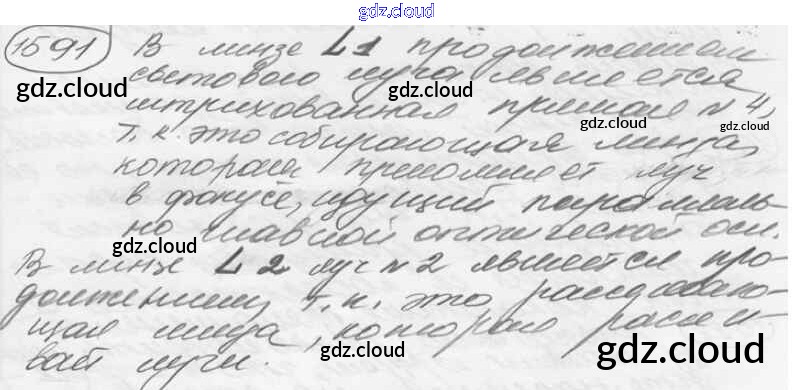 gdz.cloud
1591 В линзе L1 продолжением
светового луча является
gdz.cloud gdz.cloud
штрихованная прямая №4,
gdz.cloud gdz.cloud
т.к. это собирающая линза,
которая преломляет луч
в фокусе, идущий параллель-
но главной оптической оси.
gdz.cloud
В линзе L2 луч №2 является про-
должением, т.к. это рассеиваю-
щая линза, которая рассеи-
вает лучи.
gdz.cloud gdz.cloud